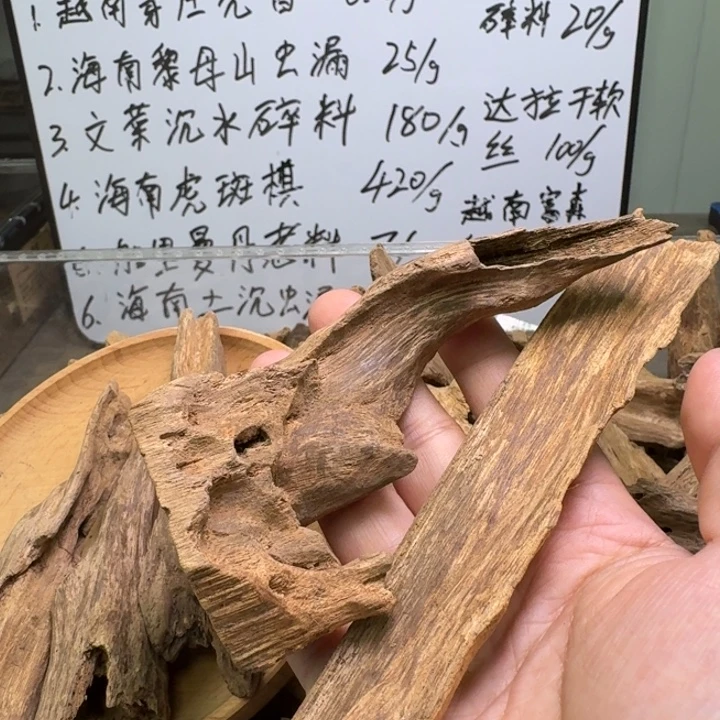 1. 越南芽庄沉香
碎料 20/g
2. 海南黎母山虫漏 25/g
3. 文莱沉水碎料 180/g
达拉干软
丝 100/g
4. 海南虎斑棋 420/g
越南富森
老料
6. 海南土沉虫漏